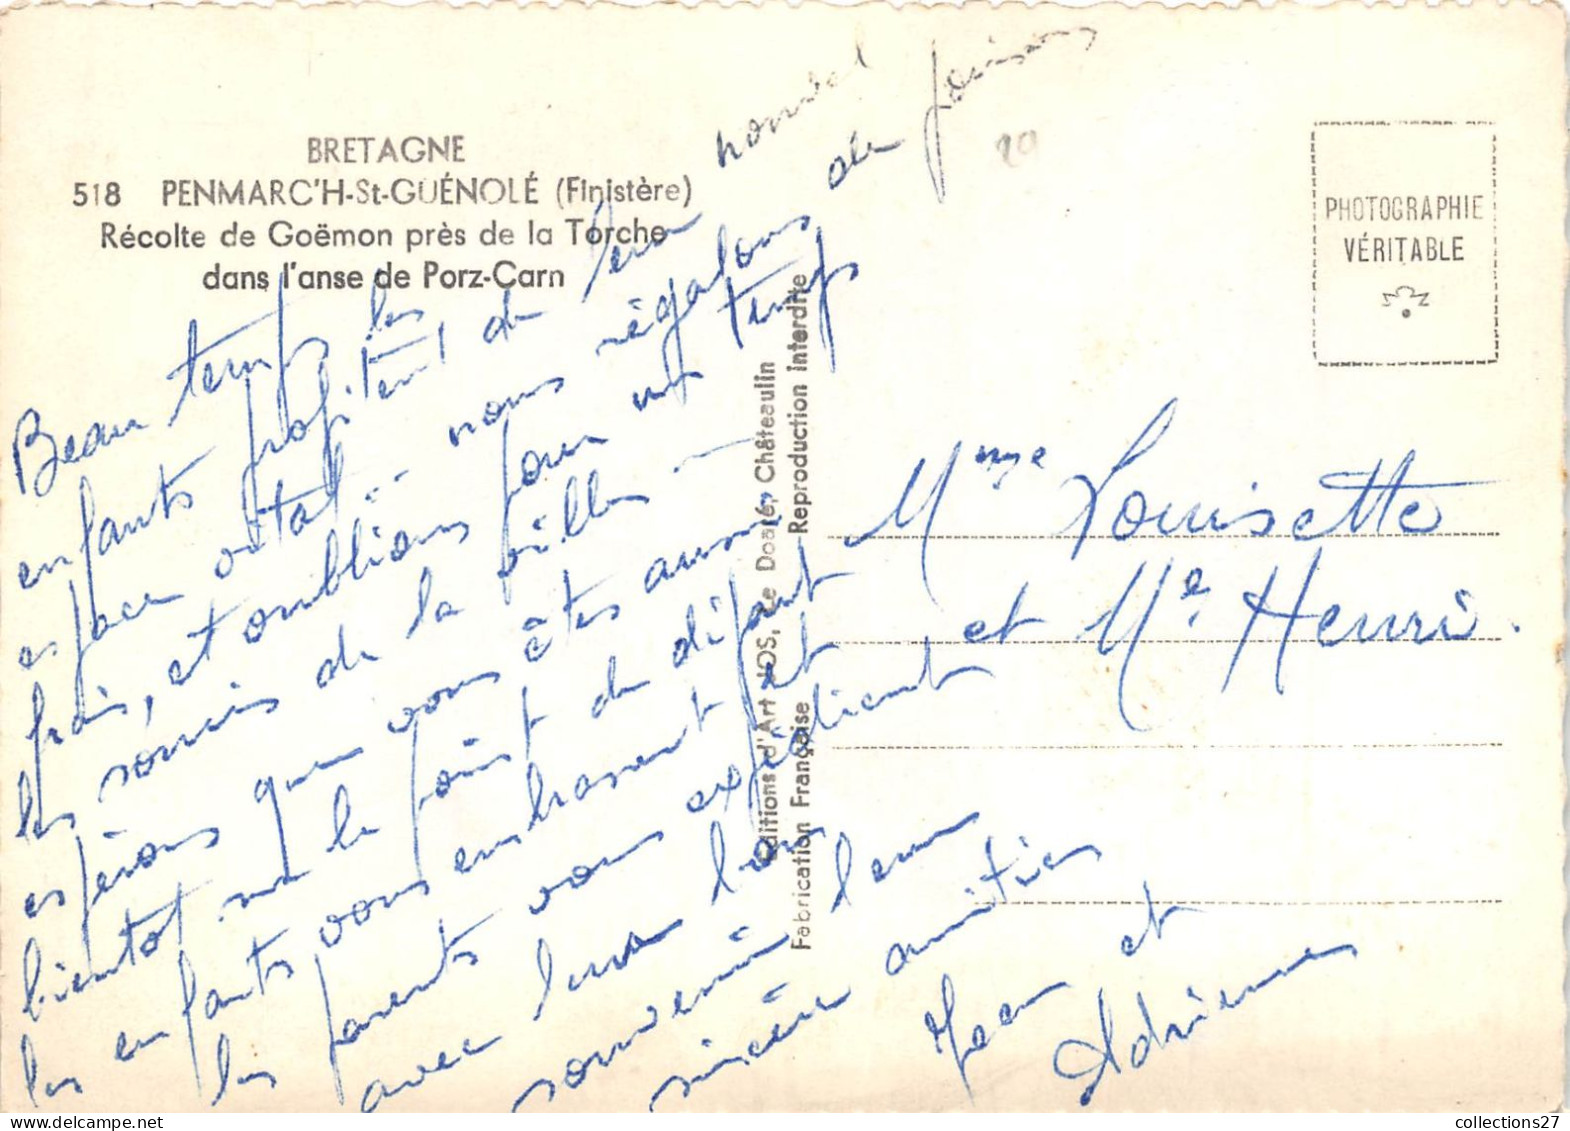 BRETAGNE
518 PENMARC'H-St-GUÉNOLÉ (Finistère)
Récolte de Goëmon près de la Torche
dans l'anse de Porz-Carn
Beau temps les
enfants profitent de leur nouvel
espace vital... nous régalons de poissons
frais, et oublions pour un temps
les soucis de la ville —
espérons que vous êtes aussi
bientot sur le point du départ
les enfants vous embrassent et
les parents vous expédient
avec leur bon
souvenir leur
sincère amitiés
Jean et
Adrienne
20
Editions d'Art JOS, Le Doaré, Châteaulin
Fabrication Française Reproduction interdite
PHOTOGRAPHIE
VÉRITABLE
Mme Louisette
et Mr Henri.
collections27